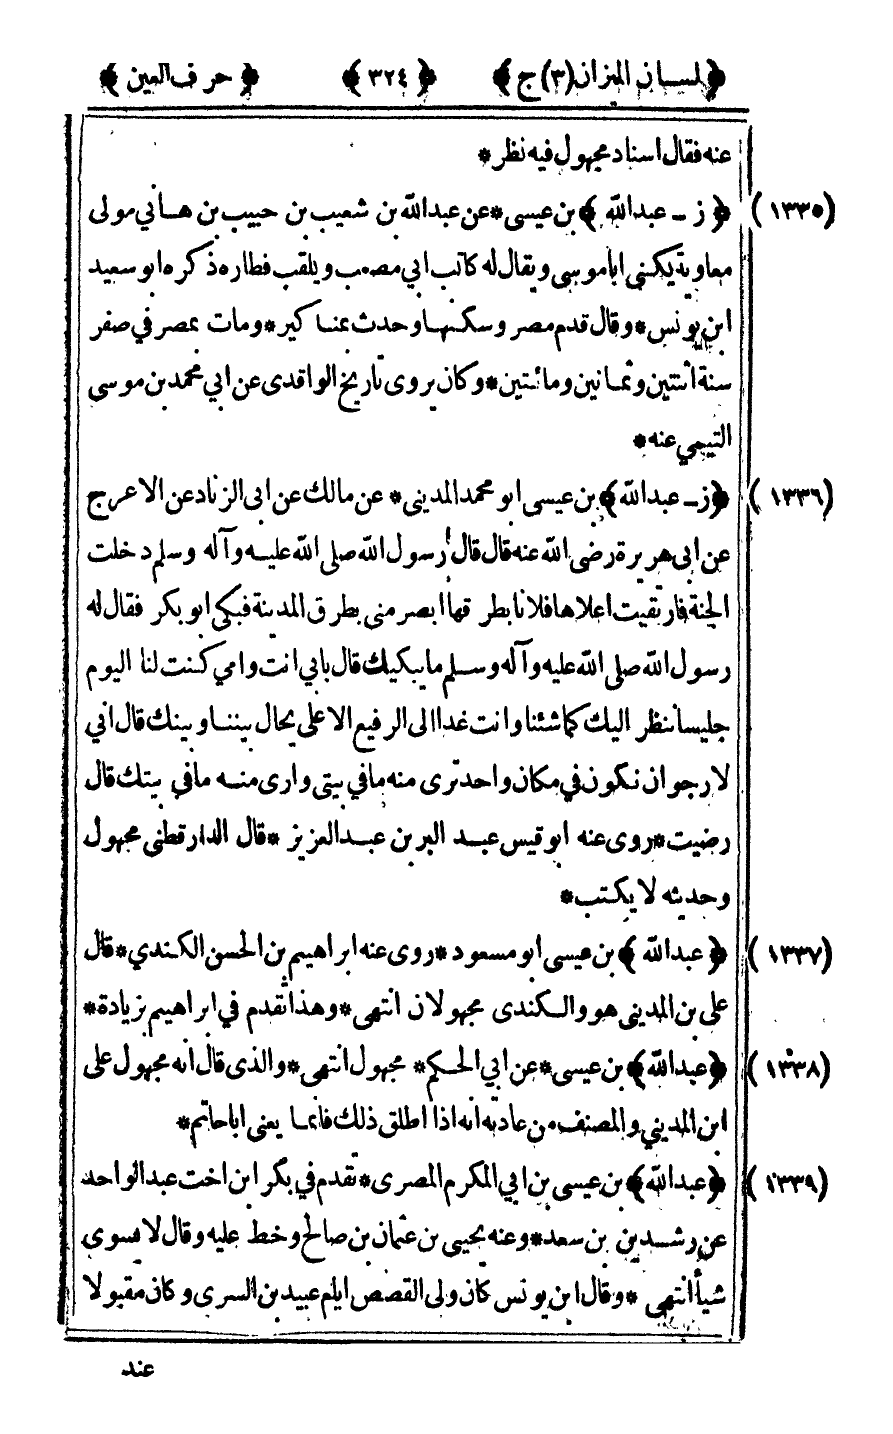 ﴿ لسان الميزان (٣) ج ﴾ ﴿ ٣٢٤ ﴾ ﴿ حرف العين ﴾
عنه فقال اسناد مجهول فيه نظر *
(١٣٣٥) ﴿ ز ـ عبدالله ﴾ بن عيسى * عن عبدالله بن شعيب بن حبيب بن هانى مولى
معاوية يكنى اباموسى ويقال له كاتب ابي مصعب ويلقب فطاره ذكره ابو سعيد
ابن يونس * وقال قدم مصر وسكنها وحدث بمناكير * ومات بمصر في صفر
سنة اثنتين وثمانين ومائتين * وكان يروى تاريخ الواقدى عن ابي محمد بن موسى
التيمي عنه *
(١٣٣٦) ﴿ ز ـ عبدالله ﴾ بن عيسى ابو محمد المديني * عن مالك عن ابى الزناد عن الاعرج
عن ابى هريرة رضى الله عنه قال قال رسول الله صلى الله عليه وآله وسلم دخلت
الجنة فارتقيت اعلاها فلانا بطرقها ابصر مني بطرق المدينة فبكى ابو بكر فقال له
رسول الله صلى الله عليه وآله وسلم ما يبكيك قال بابي انت وامي كنت لنا اليوم
جليسا ننظر اليك كما شئنا وانت غدا الى الرفيع الاعلى يحال بيننا وبينك قال اني
لارجو ان نكون في مكان واحد ترى منه ما في بيتى وارى منه ما في بيتك قال
رضيت * روى عنه ابو قيس عبد البر بن عبد العزيز * قال الدار قطنى مجهول
وحديثه لا يكتب *
(١٣٣٧) ﴿ عبدالله ﴾ بن عيسى ابو مسعود * روى عنه ابراهيم بن الحسن الكندي * قال
على بن المديني هو والكندى مجهولان انتهى * وهذا تقدم في ابراهيم بزيادة *
(١٣٣٨) ﴿ عبدالله ﴾ بن عيسى * عن ابي الحكم * مجهول انتهى * والذى قال انه مجهول على
ابن المديني والمصنف من عادته انه اذا اطلق ذلك فانما يعنى اباحاتم *
(١٣٣٩) ﴿ عبدالله ﴾ بن عيسى بن ابي المكرم المصرى * تقدم في بكر ابن اخت عبد الواحد
عن رشدين بن سعد * وعنه يحيى بن عثمان بن صالح وخط عليه وقال لا يسوى
شيأ انتهى * وقال ابن يونس كان ولى القصص ايام عبيد بن السرى وكان مقبولا
عند